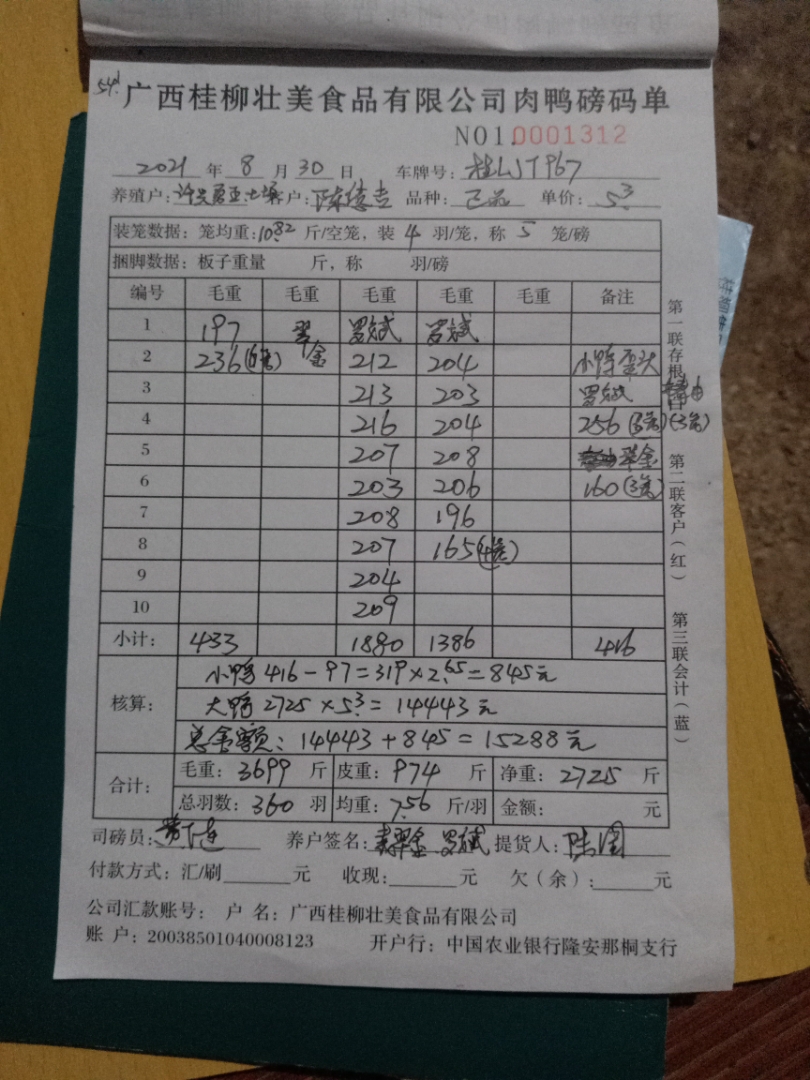 广西桂柳壮美食品有限公司肉鸭磅码单
NO1.0001312
2021 年 8 月 30 日 车牌号:
养殖户: 客户: 品种: 正品 单价: 5.3
装笼数据: 笼均重:10.82 斤/空笼,装 4 羽/笼,称 5 笼/磅
捆脚数据: 板子重量 斤,称 羽/磅
编号 毛重 毛重 毛重 毛重 毛重 备注
1 197 翠金 罗斌 罗斌
2 236(6笼) 212 204 小鸭歪头
3 213 203 罗斌
4 216 204 256(5笼)(3笼)
5 207 208 翠金
6 203 206 160(3笼)
7 208 196
8 207 165(4笼)
9 204
10 209
小计: 433 1880 1386 416
核算: 小鸭 416-97=319×2.65=845元
大鸭 2725×5.3=14443元
总金额: 14443+845=15288元
合计: 毛重: 3699 斤 皮重: 974 斤 净重: 2725 斤
总羽数: 360 羽 均重: 7.56 斤/羽 金额: 元
司磅员: 养户签名: 罗斌 提货人:
付款方式: 汇/刷 元 收现: 元 欠(余): 元
公司汇款账号: 户 名: 广西桂柳壮美食品有限公司
账 户: 20038501040008123 开户行: 中国农业银行隆安那桐支行
第一联存根白
第二联客户(红)
第三联会计(蓝)